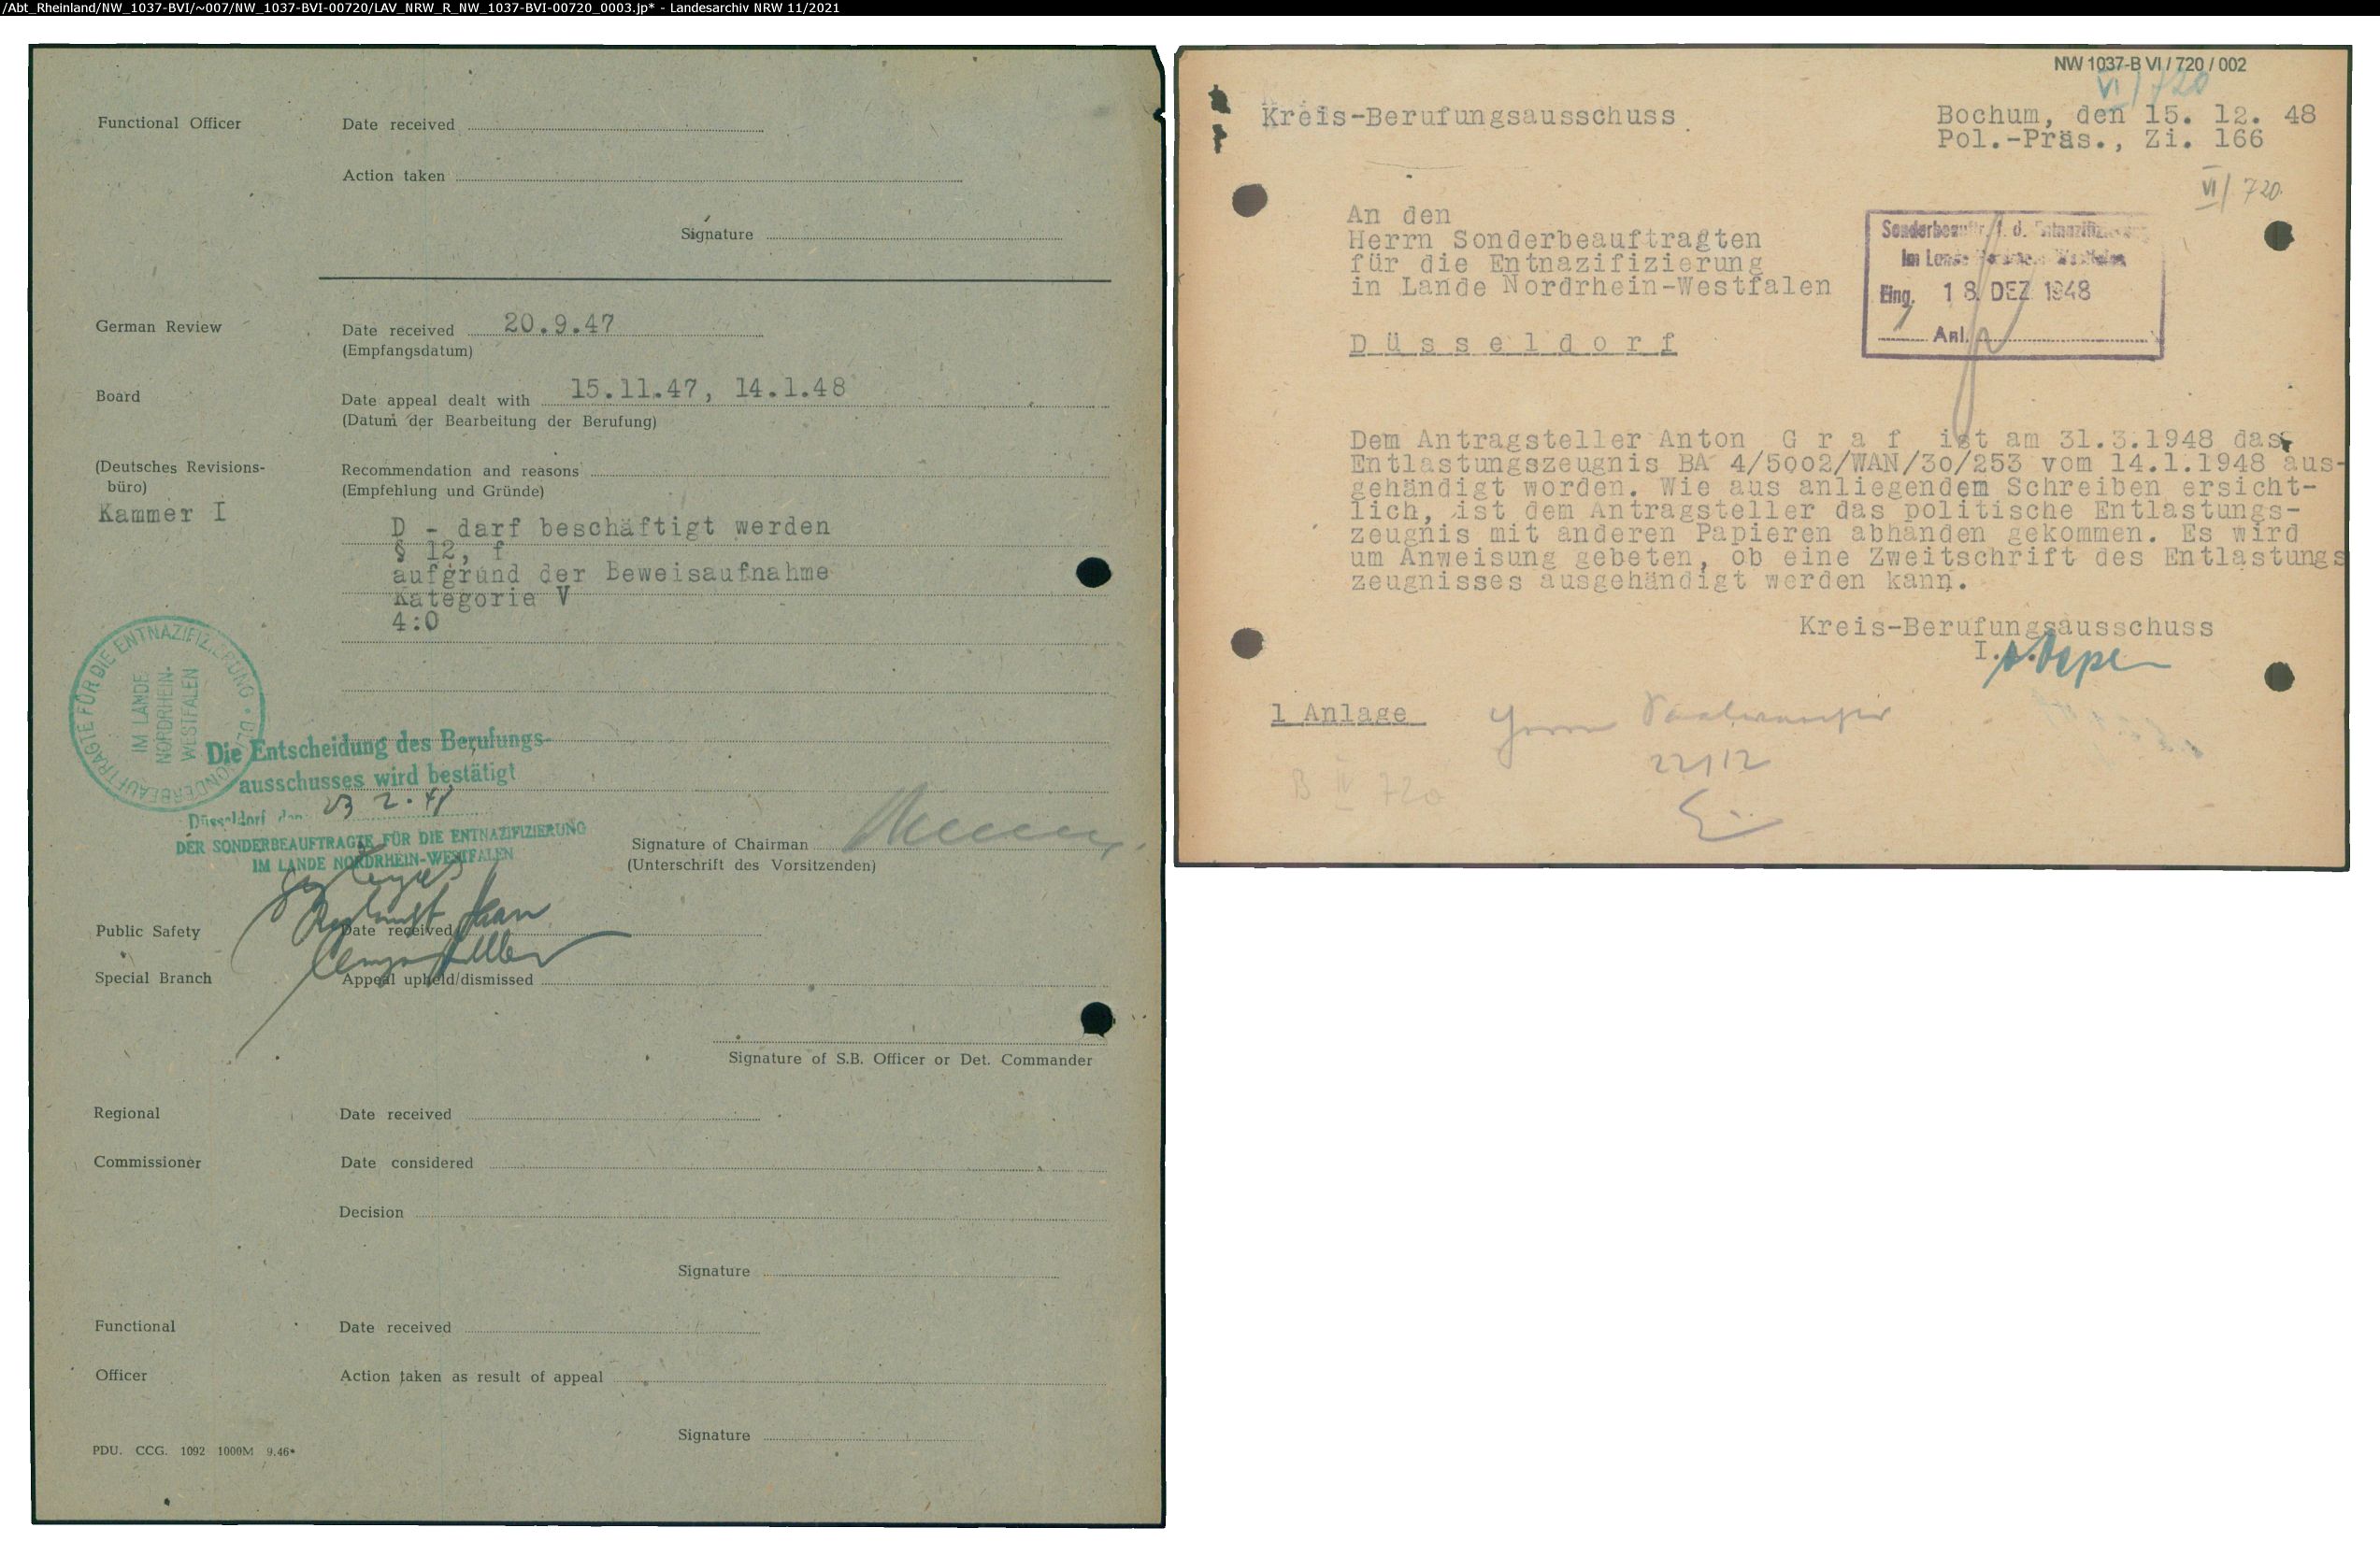 /Abt_Rheinland/NW_1037-BVI/~007/NW_1037-BVI-00720/LAV_NRW_R_NW_1037-BVI-00720_0003.jp* - Landesarchiv NRW 11/2021
Functional Officer
Date received
Action taken
Signature
German Review
Date received 20.9.47
(Empfangsdatum)
Board
Date appeal dealt with 15.11.47, 14.1.48
(Datum der Bearbeitung der Berufung)
(Deutsches Revisions-
büro)
Kammer I
Recommendation and reasons
(Empfehlung und Gründe)
D - darf beschäftigt werden
§ 12, f
aufgrund der Beweisaufnahme
Kategorie V
4:0
SONDERBEAUFTRAGTE FÜR DIE ENTNAZIFIZIERUNG
IM LANDE
NORDRHEIN-
WESTFALEN
Die Entscheidung des Berufungs-
ausschusses wird bestätigt
Düsseldorf den 23 2. 48
DER SONDERBEAUFTRAGTE FÜR DIE ENTNAZIFIZIERUNG
IM LANDE NORDRHEIN-WESTFALEN
Signature of Chairman
(Unterschrift des Vorsitzenden)
Public Safety
Date received
Special Branch
Appeal upheld/dismissed
Signature of S.B. Officer or Det. Commander
Regional
Date received
Commissioner
Date considered
Decision
Signature
Functional
Date received
Officer
Action taken as result of appeal
Signature
PDU. CCG. 1092 1000M 9.46*
NW 1037-B VI / 720 / 002
VI / 720
Kreis-Berufungsausschuss
Bochum, den 15. 12. 48
Pol.-Präs., Zi. 166
VI / 720.
An den
Herrn Sonderbeauftragten
für die Entnazifizierung
in Lande Nordrhein-Westfalen
Düsseldorf
Sonderbeauftr. f. d. Entnazifizierung
Im Lande Nordrhein-Westfalen
Eing. 18. DEZ. 1948
1 Anl.
Dem Antragsteller Anton G r a f ist am 31.3.1948 das
Entlastungszeugnis BA 4/5002/WAN/30/253 vom 14.1.1948 aus-
gehändigt worden. Wie aus anliegendem Schreiben ersicht-
lich, ist dem Antragsteller das politische Entlastungs-
zeugnis mit anderen Papieren abhanden gekommen. Es wird
um Anweisung gebeten, ob eine Zweitschrift des Entlastungs
zeugnisses ausgehändigt werden kann.
Kreis-Berufungsausschuss
I.A.
1 Anlage
Herrn
22/12
B IV 720